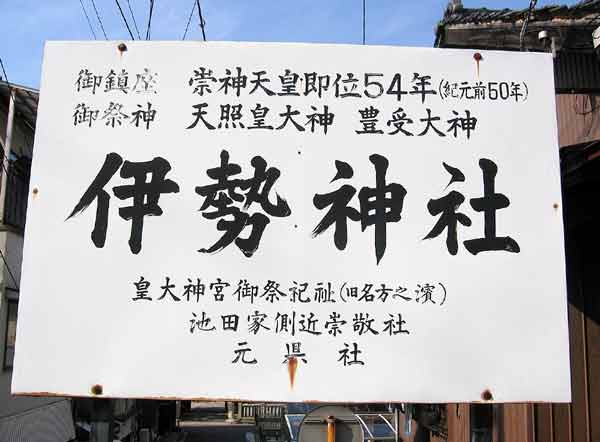 御鎮座 崇神天皇即位54年(紀元前50年)
御祭神 天照皇大神 豊受大神
伊勢神社
皇大神宮御祭祀祉(旧名方之濱)
池田家側近崇敬社
元県社